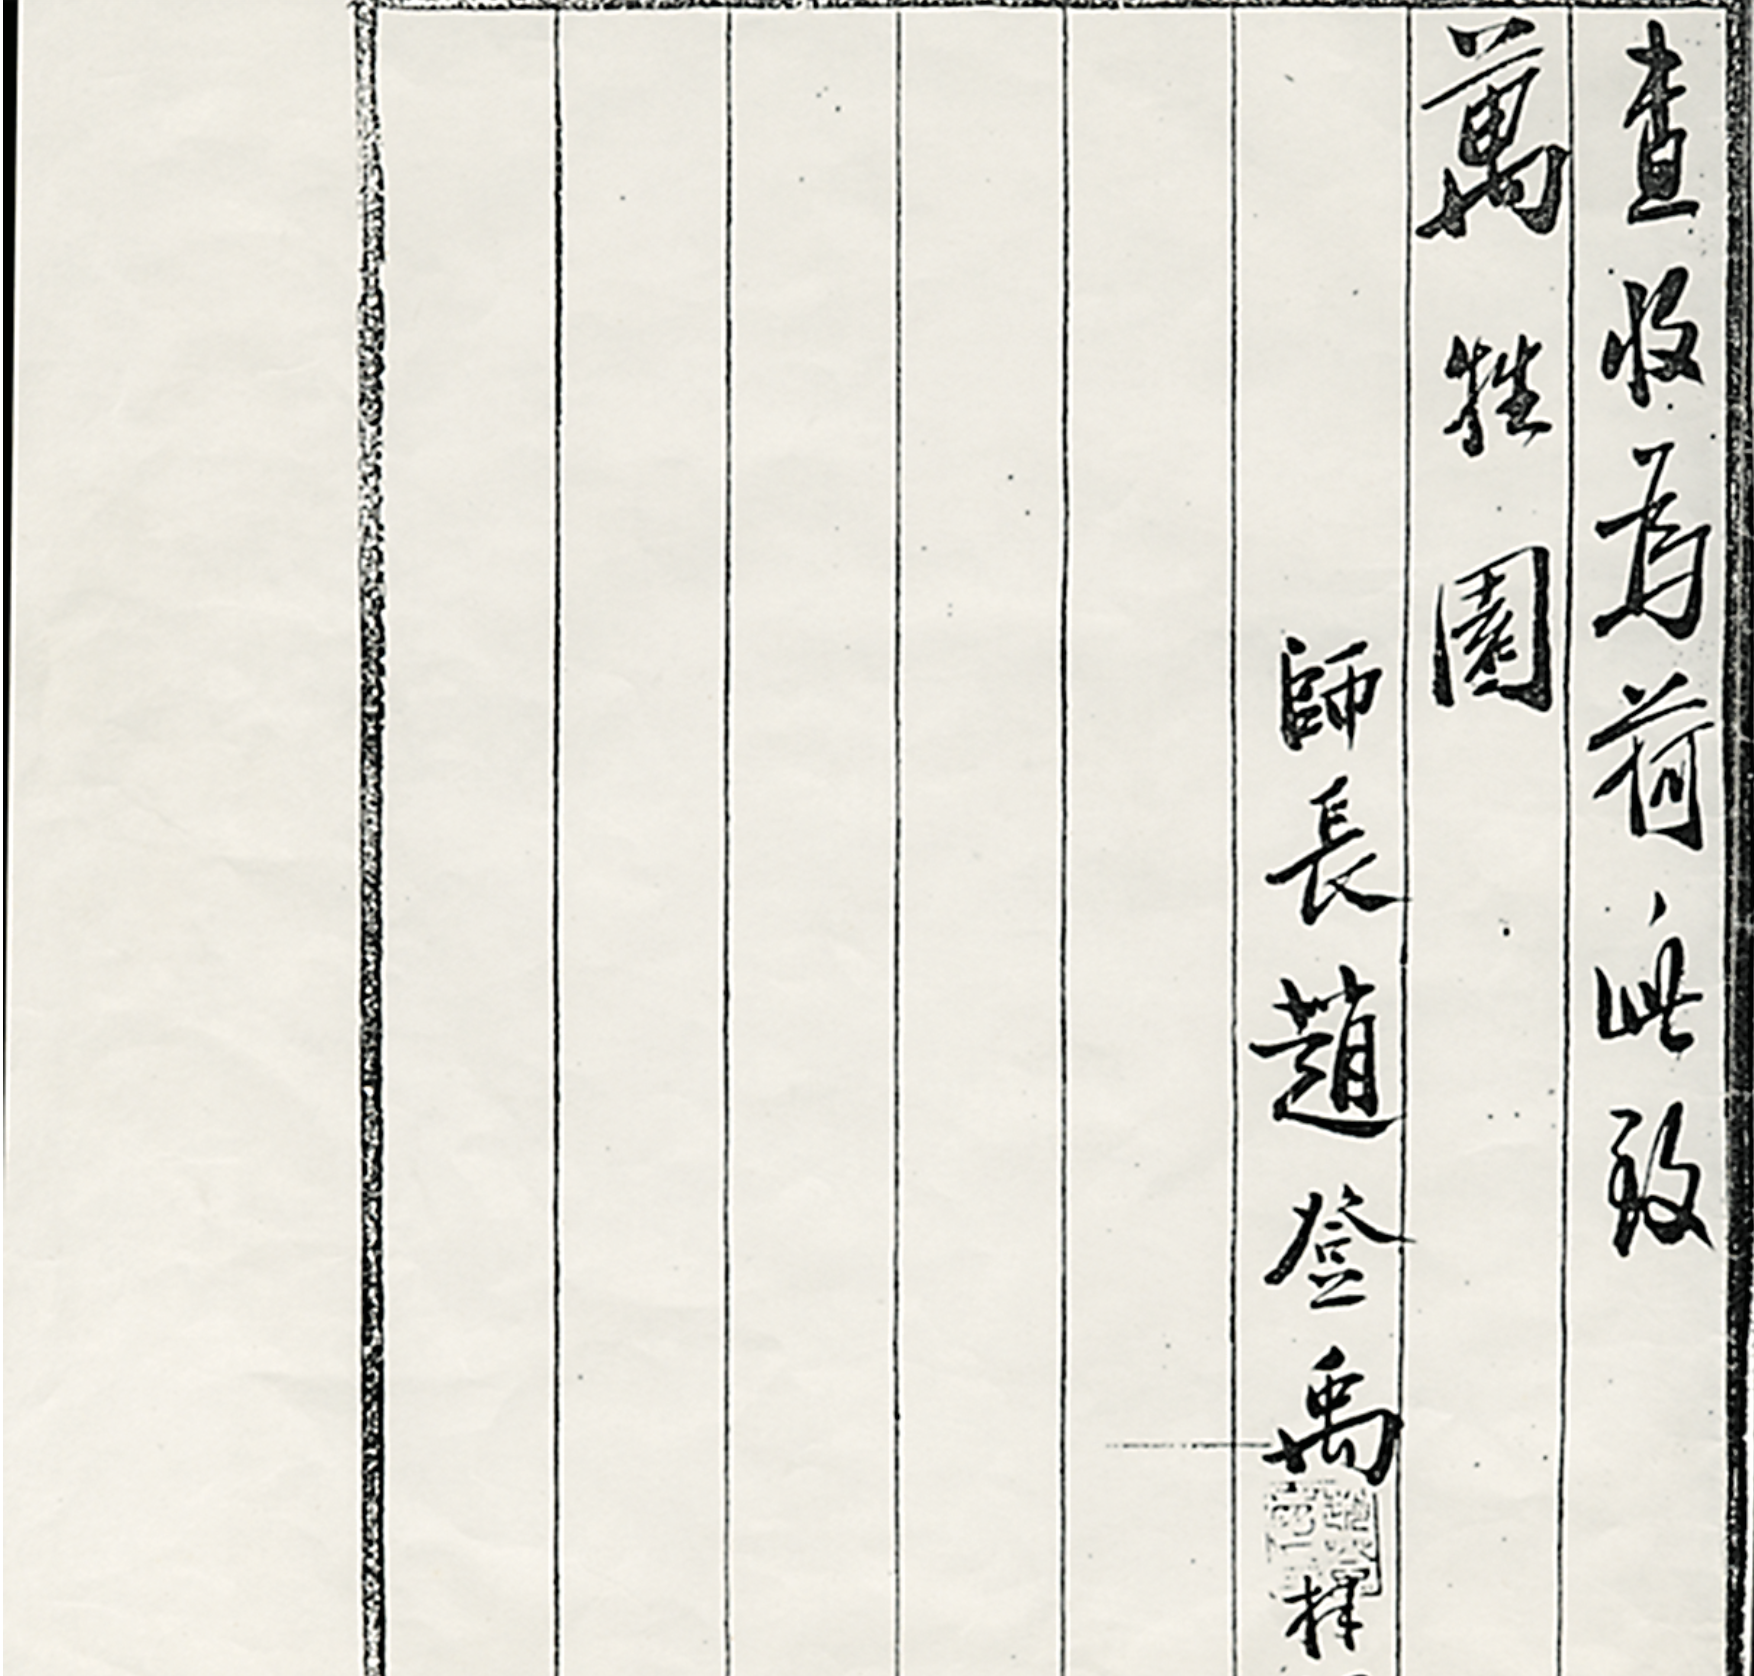 查收為荷、此致
萬牲園
師長趙登禹拜